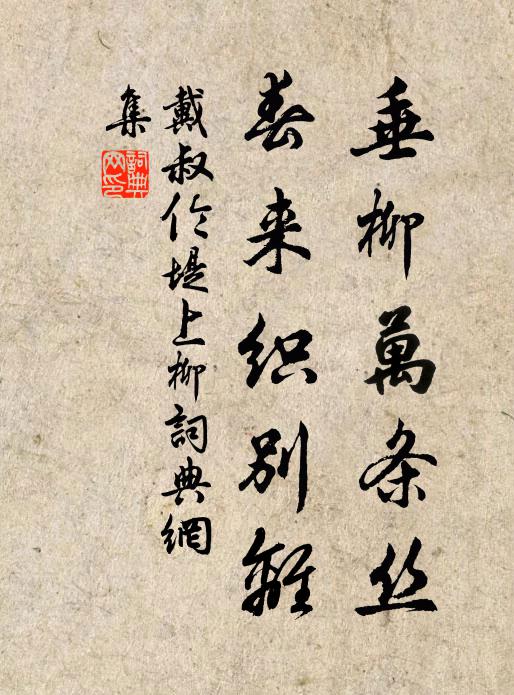 垂柳萬条丝
春来织别離
戴叔伦堤上柳詞典網
集
詞典网印